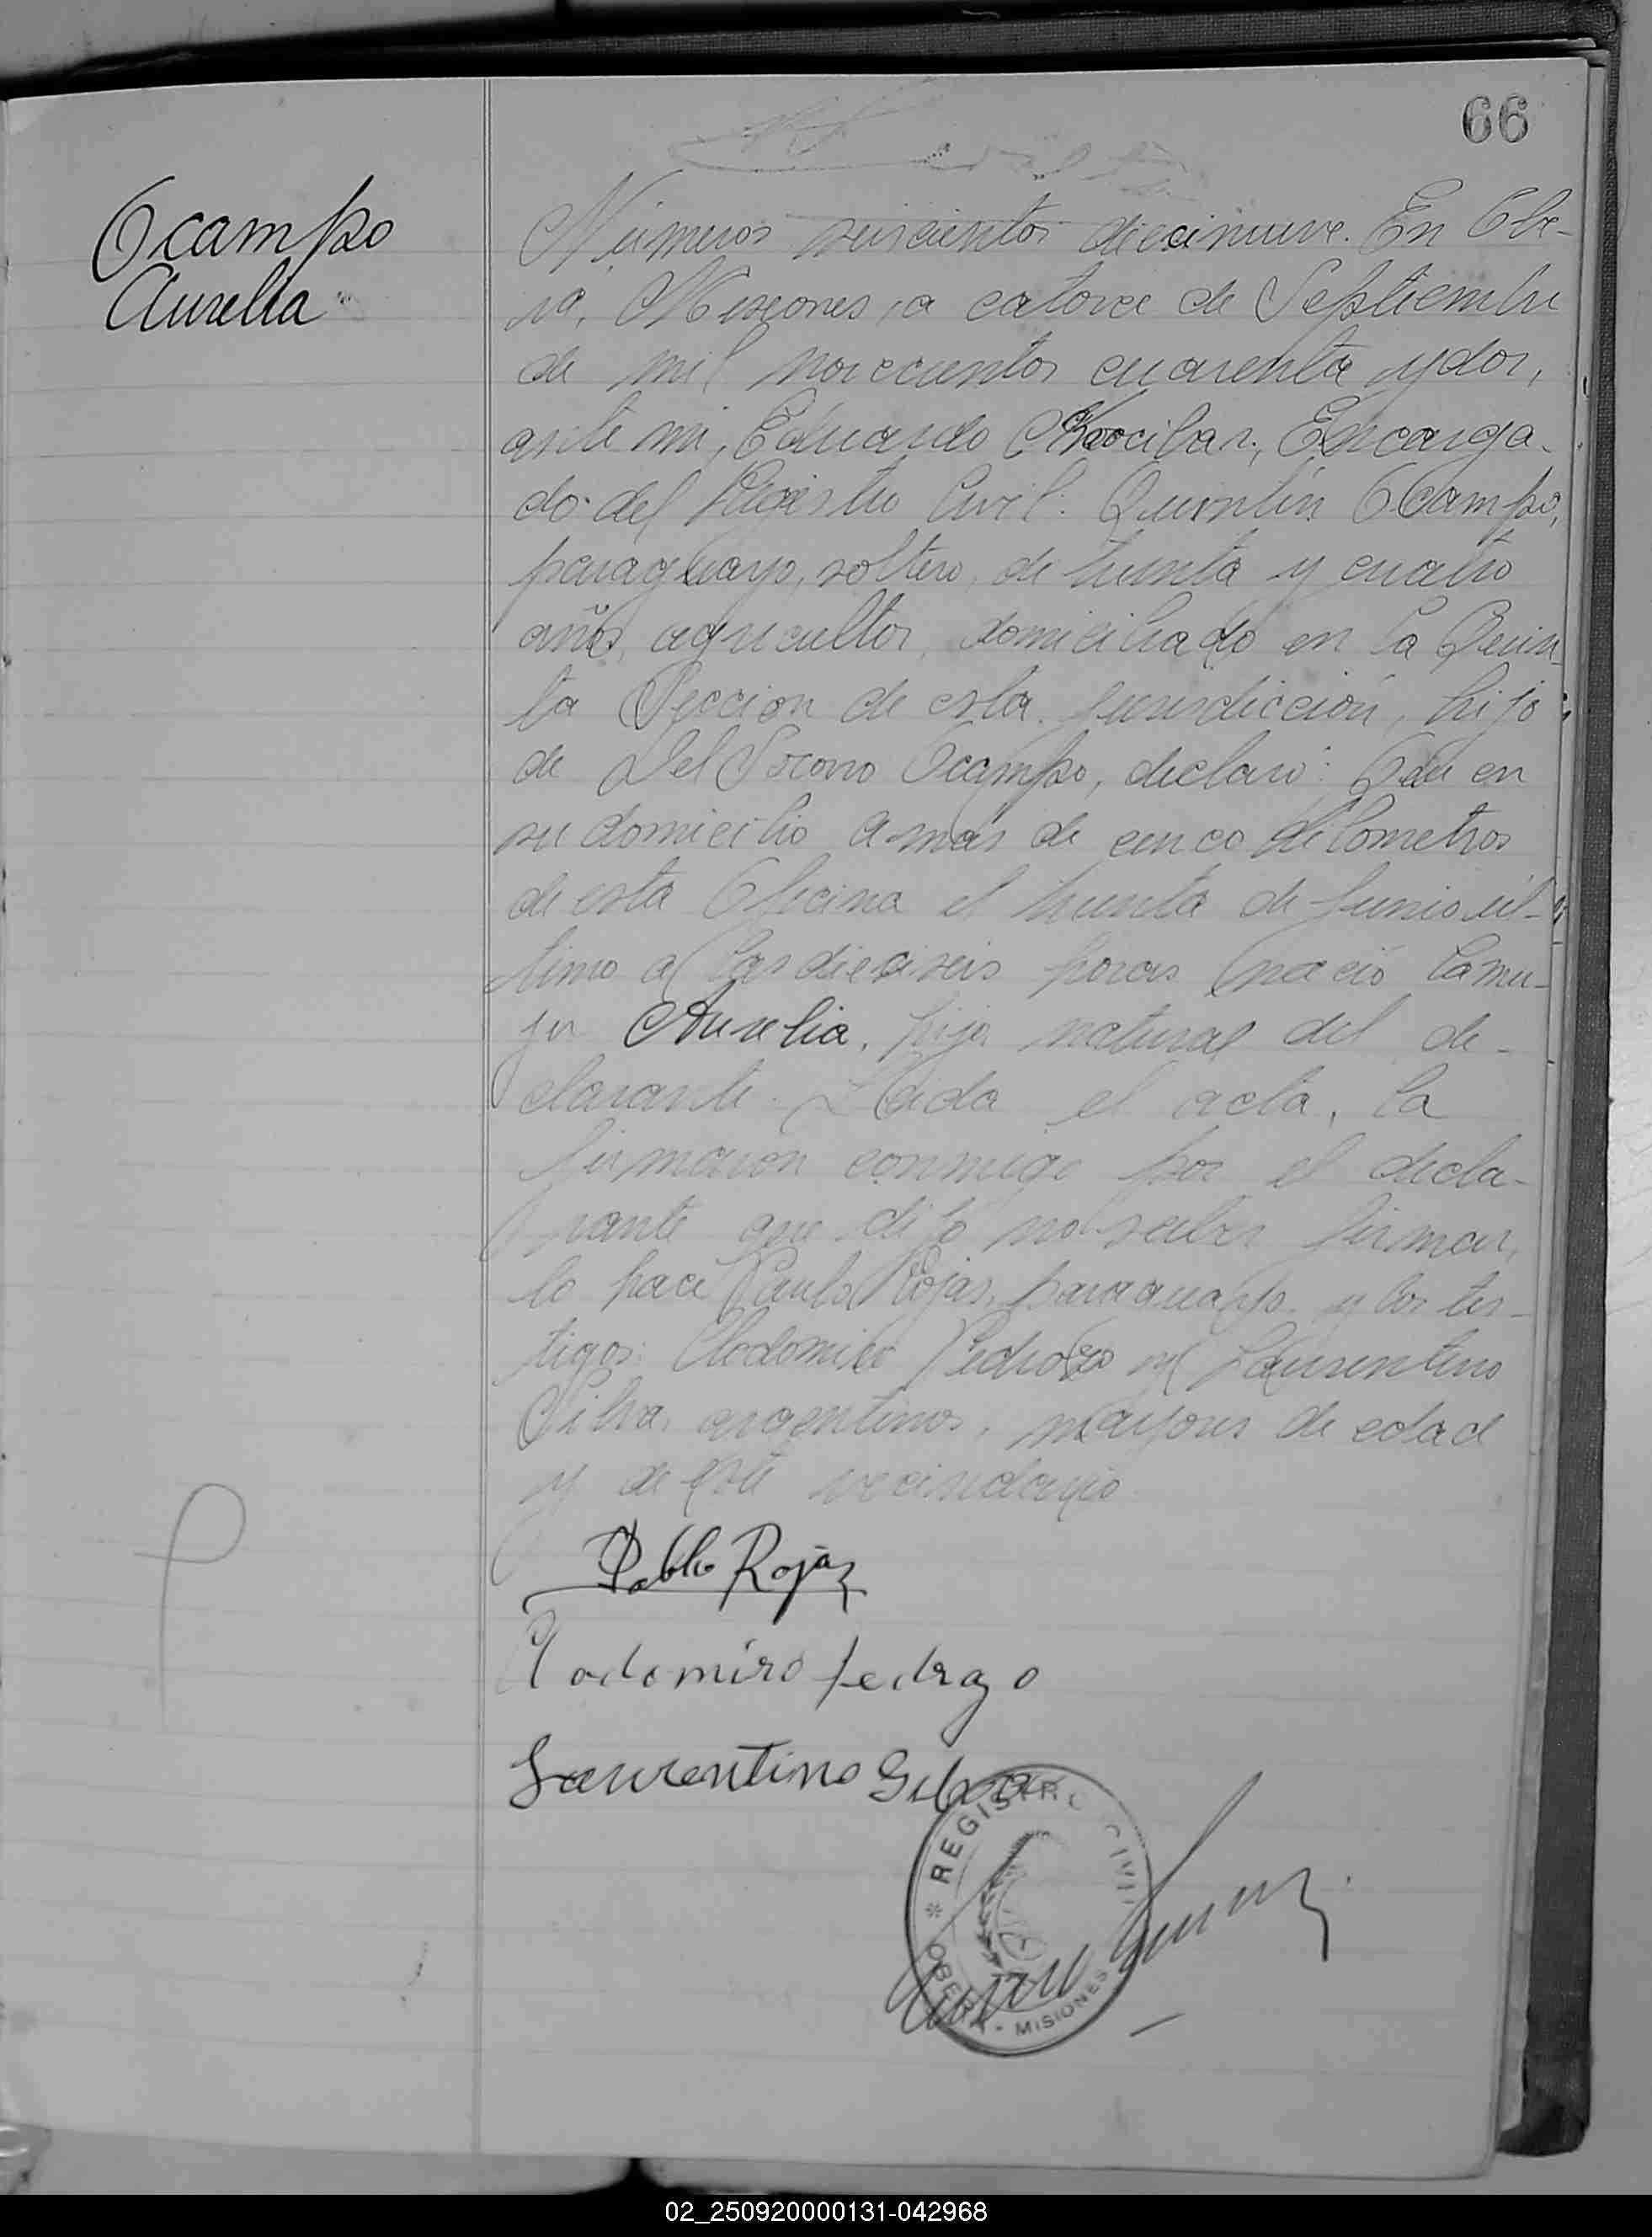 66
Ocampo
Aurelia
Número seiscientos diecinueve. En Obe-
rá, Misiones, a catorce de Septiembre
de mil novecientos cuarenta y dos,
ante mi, Eduardo Encarga-
do del Registro Civil: Quintín Ocampo,
paraguayo, soltero, de treinta y cuatro
años, agricultor, domiciliado en la Quin-
ta Sección de esta jurisdicción, hijo
de Del Socorro Ocampo, declaró: Que en
su domicilio a más de cinco kilometros
de esta Oficina el treinta de Junio úl-
timo a las dieciseis horas nació la mu-
jer Aurelia, hija natural del de-
clarante. Leida el acta, la
firmaron conmigo por el decla-
rante que dijo no saber firmar,
lo hace Pablo Rojas, paraguayo y los tes-
tigos: Clodomiro Pedrozo y Laurentino
Silva, argentinos, mayores de edad
y de este vecindario
Pablo Rojas
Clodomiro Pedrazo
Laurentino Silva
REGISTRO CIVIL
OBERA - MISIONES
02_250920000131-042968